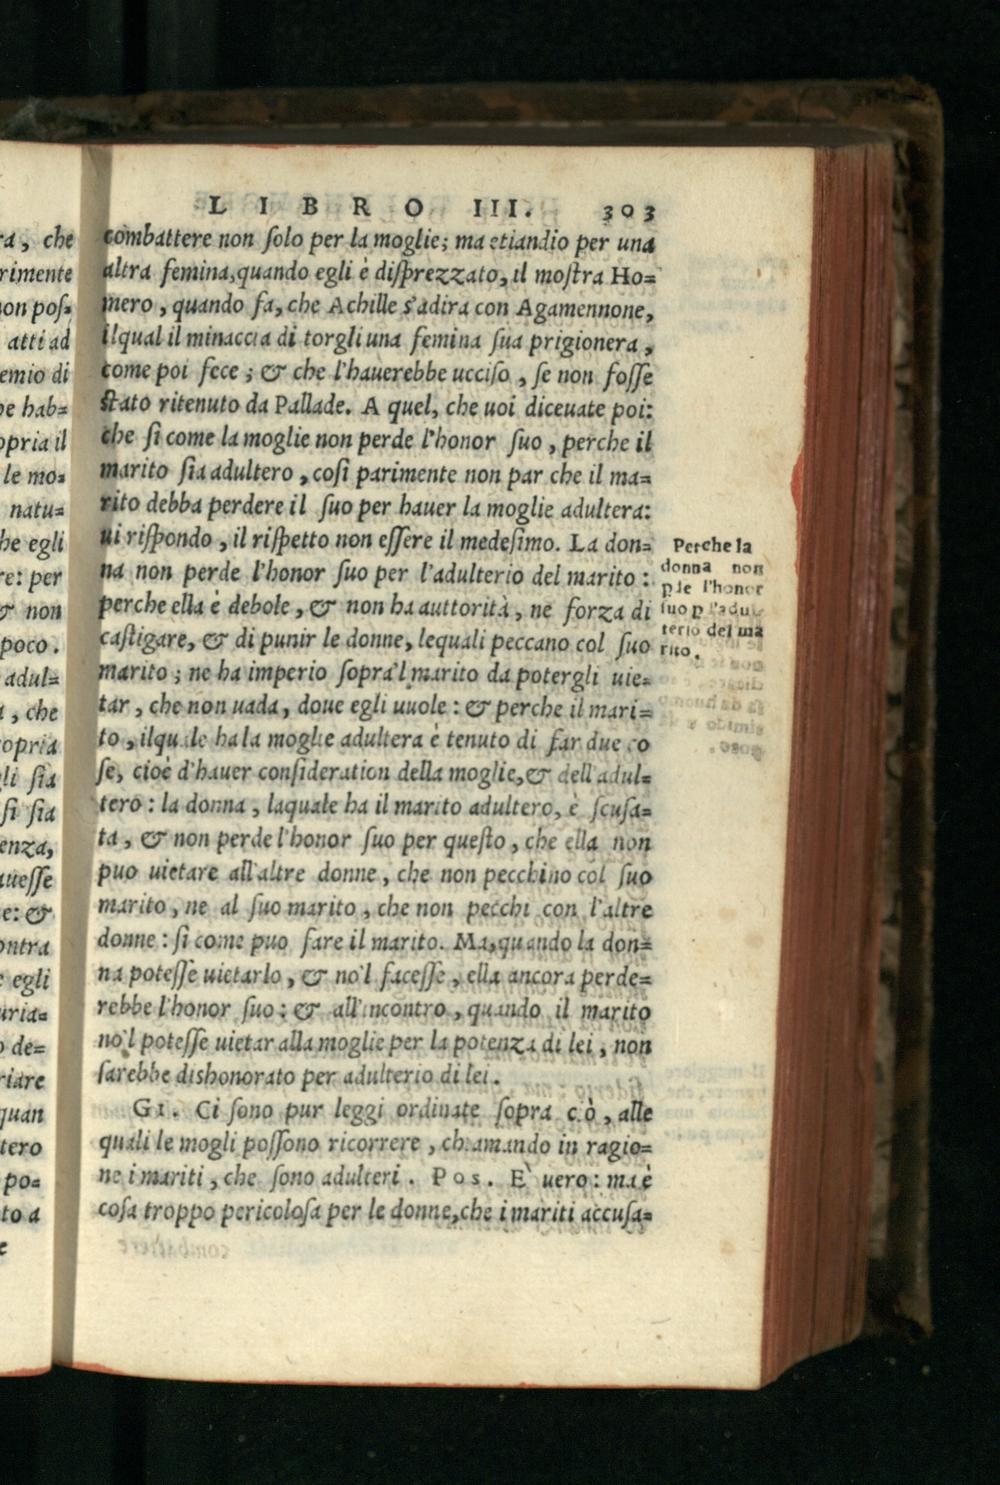 LIBRO III. 303
combattere non ſolo per la moglie; ma etiandio per una
altra femina, quando egli è diſprezzato, il moſtra Ho=
mero, quando fa, che Achille s'adira con Agamennone,
ilqual il minaccia di torgli una femina ſua prigionera,
come poi fece; & che l'hauerebbe ucciſo, ſe non foſſe
ſtato ritenuto da Pallade. A quel, che uoi diceuate poi:
che ſi come la moglie non perde l'honor ſuo, perche il
marito ſia adultero, coſi parimente non par che il ma=
rito debba perdere il ſuo per hauer la moglie adultera:
ui riſpondo, il riſpetto non eſſere il medeſimo. La don=
na non perde l'honor ſuo per l'adulterio del marito:
perche ella è debole, & non ha auttorità, ne forza di
caſtigare, & di punir le donne, lequali peccano col ſuo
marito; ne ha imperio ſopra'l marito da potergli uie=
tar, che non uada, doue egli uuole: & perche il mari=
to, ilquale ha la moglie adultera è tenuto di far due co
ſe, cioè d'hauer conſideration della moglie, & dell'adul=
tero: la donna, laquale ha il marito adultero, è ſcuſa=
ta, & non perde l'honor ſuo per queſto, che ella non
puo uietare all'altre donne, che non pecchino col ſuo
marito, ne al ſuo marito, che non pecchi con l'altre
donne: ſi come puo fare il marito. Ma, quando la don=
na poteſſe uietarlo, & no'l faceſſe, ella ancora perde=
rebbe l'honor ſuo: & all'incontro, quando il marito
no'l poteſſe uietar alla moglie per la potenza di lei, non
ſarebbe dishonorato per adulterio di lei.
GI. Ci ſono pur leggi ordinate ſopra ciò, alle
quali le mogli poſſono ricorrere, chiamando in ragio=
ne i mariti, che ſono adulteri. Pos. E' uero: ma è
coſa troppo pericoloſa per le donne, che i mariti accuſa=
Perche la
donna non
pde l'honor
ſuo p l'adul=
terio del ma
rito.
ra, che
rimente
non poſ=
atti ad
emio di
he hab=
opria il
le mo=
natu=
he egli
re: per
& non
poco.
adul=
, che
ropria
gli ſia
ſi ſia
enza,
aueſſe
e: &
ontra
egli
uria=
o de=
riare
quan
tero
po=
to a